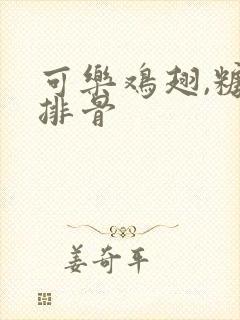 可樂鸡翅,糖
排骨
姜奇平